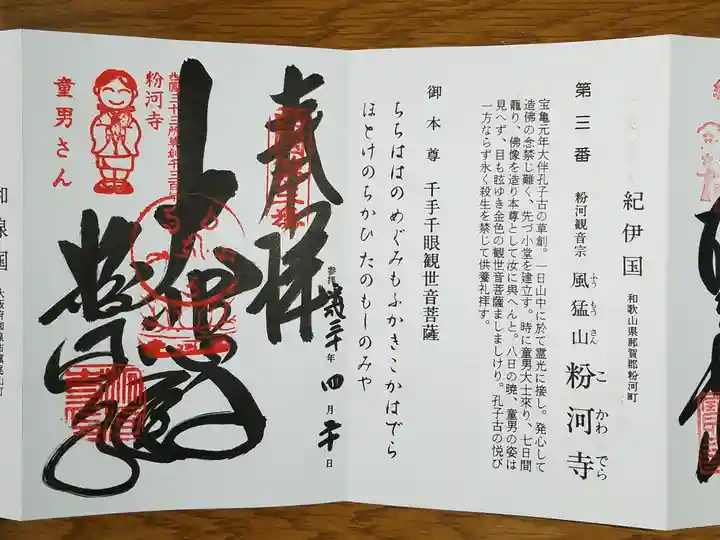 紀伊国 和歌山県那賀郡粉河町
第三番 粉河観音宗 風猛山 粉河寺
ふう もう さん こ かわ でら
宝亀元年大伴孔子古の草創。一日山中に於て霊光に接し。発心して
造佛の念禁じ難く、先づ小堂を建立す。時に童男大士來り、七日間
籠り、佛像を造り本尊として汝に與へんと。八日の曉、童男の姿は
見へず、目も眩ゆき金色の観世音菩薩ましましけり。孔子古の悦び
一方ならず永く殺生を禁じて供養礼拝す。
御本尊 千手千眼観世音菩薩
ちちははのめぐみもふかきこかはでら
ほとけのちかひたのもしのみや
奉拝
参拝 年 四月 日
大悲殿
粉河寺
西国三十三所草創千三百年
粉河寺
童男さん